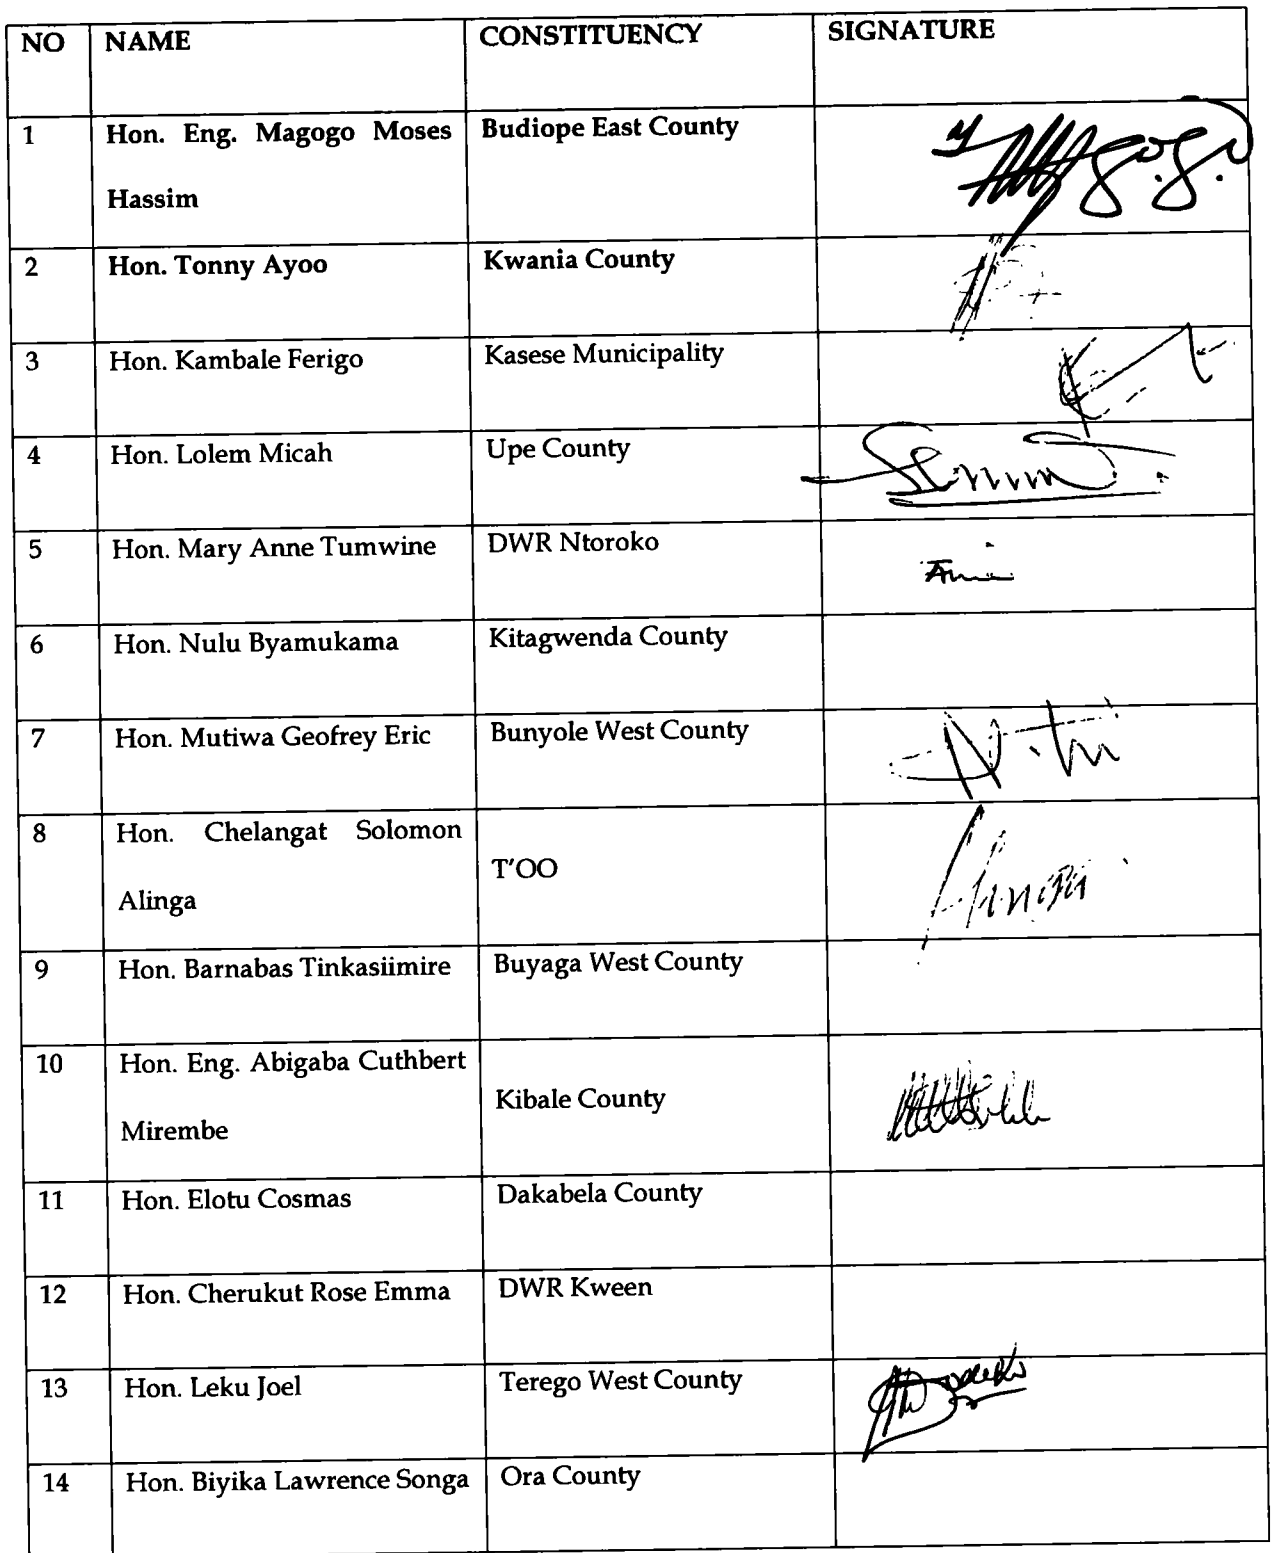 NO NAME CONSTITUENCY SIGNATURE
1 Hon. Eng. Magogo Moses Budiope East County
Hassim
2 Hon. Tonny Ayoo Kwania County
3 Hon. Kambale Ferigo Kasese Municipality
4 Hon. Lolem Micah Upe County
5 Hon. Mary Anne Tumwine DWR Ntoroko
6 Hon. Nulu Byamukama Kitagwenda County
7 Hon. Mutiwa Geofrey Eric Bunyole West County
8 Hon. Chelangat Solomon
T'OO
Alinga
9 Hon. Barnabas Tinkasiimire Buyaga West County
10 Hon. Eng. Abigaba Cuthbert
Kibale County
Mirembe
11 Hon. Elotu Cosmas Dakabela County
12 Hon. Cherukut Rose Emma DWR Kween
13 Hon. Leku Joel Terego West County
14 Hon. Biyika Lawrence Songa Ora County